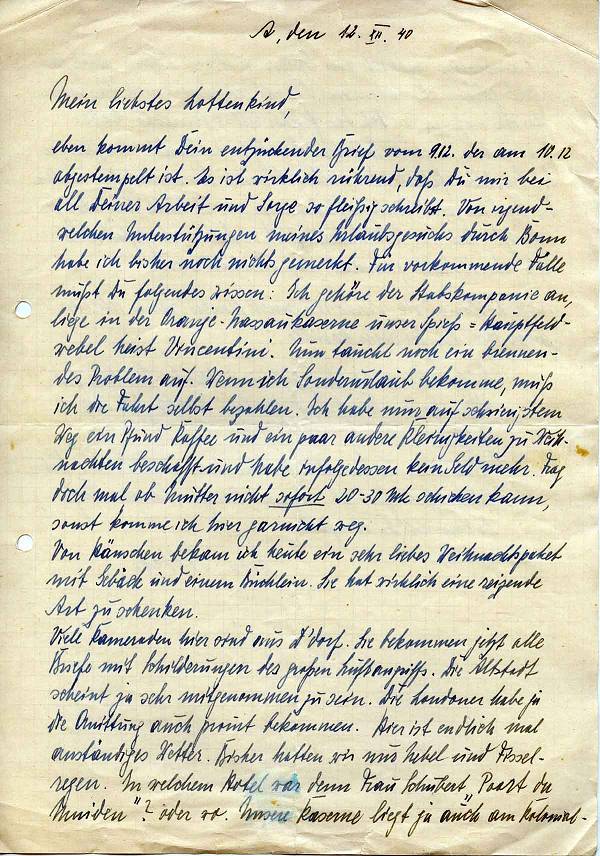 A, den 12. XII. 40
Mein liebstes Lottenkind,
eben kommt Dein entzückender Brief vom 9.12. der am 10.12
abgestempelt ist. Es ist wirklich rührend, daß Du mir bei
all Deiner Arbeit und Sorge so fleißig schreibst. Von irgend-
welchen Unterstützungen meines Urlaubsgesuchs durch Bonn
habe ich bisher noch nichts gemerkt. Für vorkommende Fälle
mußt Du folgendes wissen: Ich gehöre der Stabskompanie an,
liege in der Oranje-Nassaukaserne unser Spieß = Hauptfeld-
webel heist Vincentini. Nun taucht noch ein brennen-
des Problem auf. Wenn ich Sonderurlaub bekomme, muß
ich die Fahrt selbst bezahlen. Ich habe nur auf schwierigstem
Weg ein Pfund Kaffee und ein paar andere Kleinigkeiten zu Weih-
nachten beschafft und habe infolgedessen kein Geld mehr. Frag
doch mal ob Mutter nicht sofort 20-30 Mk schicken kann,
sonst komme ich hier garnicht weg.
Von Hänschen bekam ich heute ein sehr liebes Weihnachtspaket
mit Gebäck und einem Büchlein. Sie hat wirklich eine reizende
Art zu schenken.
Viele Kameraden hier sind aus D'dorf. Sie bekommen jetzt alle
Briefe mit Schilderungen des großen Luftangriffs. Die Altstadt
scheint ja sehr mitgenommen zu sein. Die Londoner habe ja
die Quittung auch promt bekommen. Hier ist endlich mal
anständiges Wetter. Bisher hatten wir nur Nebel und Fissel-
regen. In welchem Hotel war denn Frau Schubert, "Poort van
Muiden"? oder wo. Unsere Kaserne liegt ja auch am Kolonial-